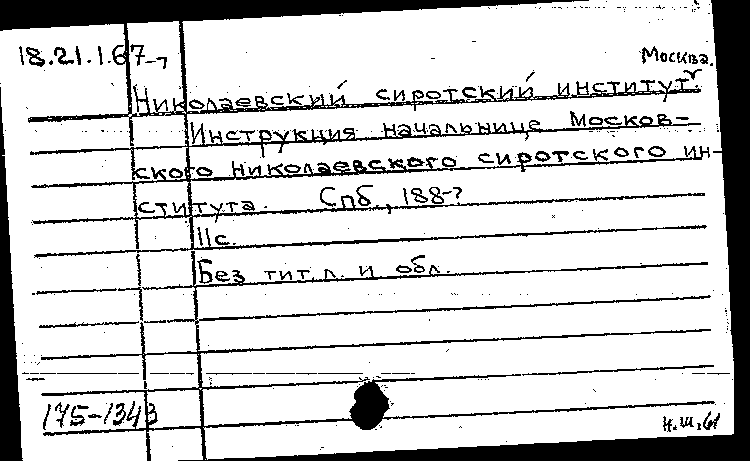 18.21.1.67-7
Москва.
Николаевский сиротский институт.
Инструкция начальнице Москов-
ского Николаевского сиротского ин-
ститута. Спб., 188-?
11с.
Без тит. л. и обл.
175-1343
Н.Ш.61